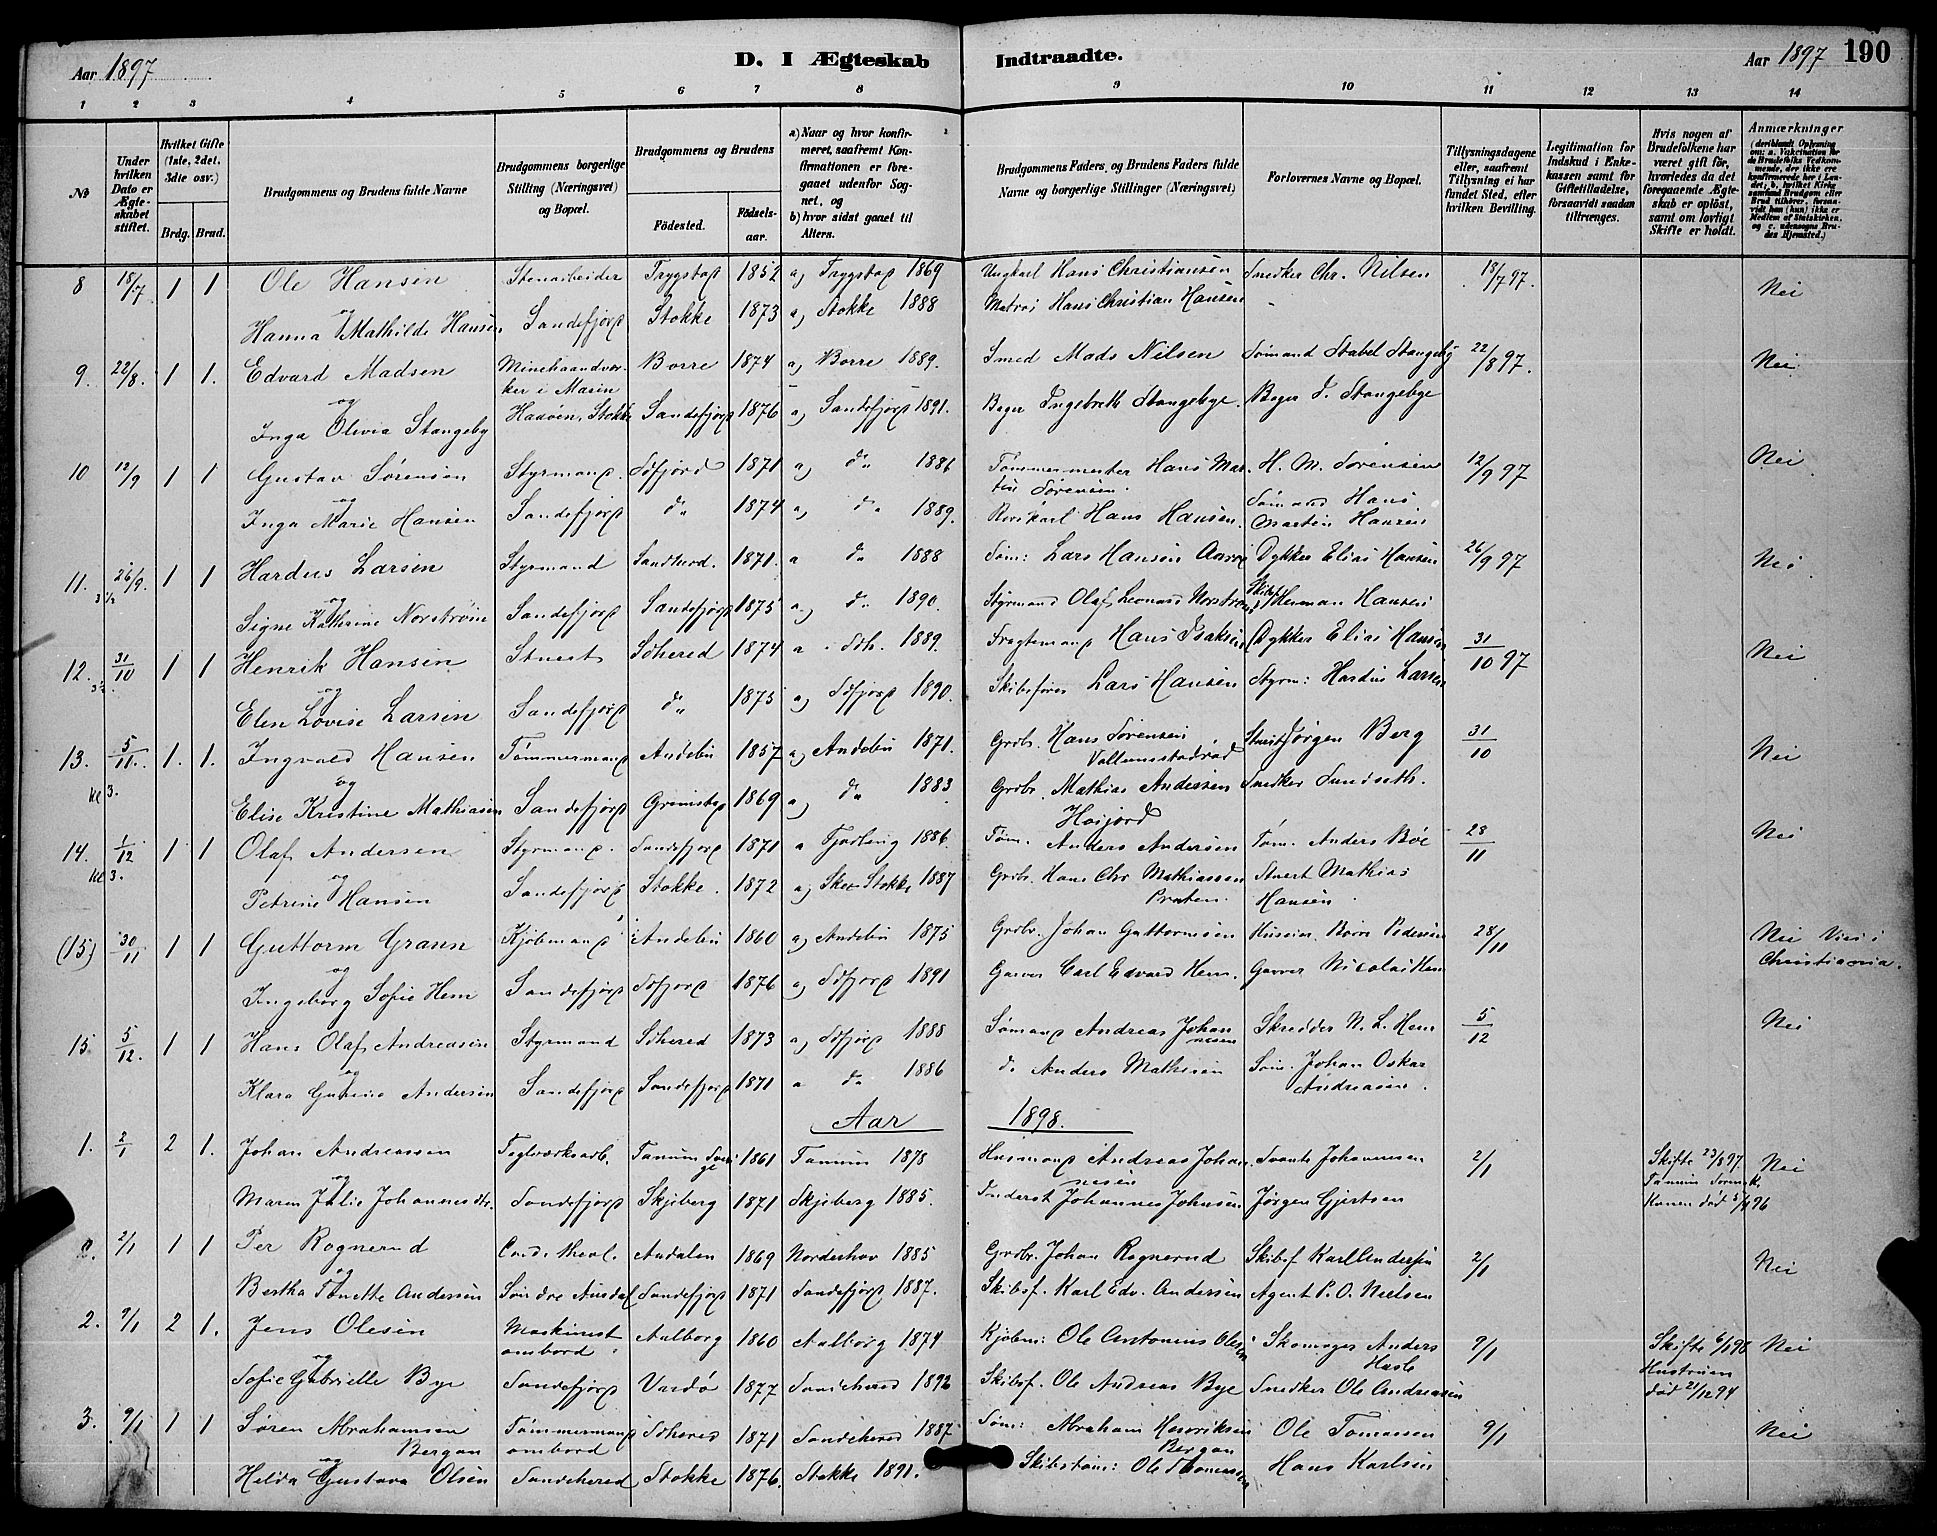 Aar 1897
D. I Ægteskab Indtraadte.
Aar 1897 190
1 2 3 4 5 6 7 8 9 10 11 12 13 14
№
Under hvilken Dato er Ægteskabet stiftet.
Hvilket Gifte (1ste, 2det, 3die osv.)
Brdg. Brud.
Brudgommens og Brudens fulde Navne
Brudgommens borgerlige Stilling (Næringsvei) og Bopæl.
Brudgommens og Brudens
Födested. Födsels-aar.
a) Naar og hvor konfirmeret, saafremt Konfirmationen er foregaaet udenfor Sognet, og
b) hvor sidst gaaet til Alters.
Brudgommens Faders og Brudens Faders fulde Navne og borgerlige Stillinger (Næringsvei)
Forlovernes Navne og Bopæl.
Tillysningsdagene eller, saafremt Tillysning ei har fundet Sted, efter hvilken Bevilling.
Legitimation for Indskud i Enkekassen samt for Giftetilladelse, forsaavidt saadan tiltrænges.
Hvis nogen af Brudefolkene har været gift för, hvorledes da det foregaaende Ægteskab er oplöst, samt om lovligt Skifte er holdt.
Anmærkninger (deriblandt Oplysning om: a. Vakcination for de Brudefolks Vedkommende, der ikke ere konfirmerede her i Landet; b. hvilket Kirkesamfund Brudgom eller Brud tilhörer, forsaavidt han (hun) ikke er Medlem af Statskirken, og c. udensogns Brudes Hjemsted.)
8 18/7 1 1 Ole Hansen Stenarbeider Trygstad 1852 a, Trygstad 1869 Ungkarl Hans Christiansen Snedker Chr. Nilsen 18/7 97. Nei
og
Hanna Mathilde Hansen Sandefjord Stokke 1873 a, Stokke 1888 Matros Hans Christian Hansen
9. 22/8. 1 1. Edvard Madsen Borre 1874 a, Borre 1889. Smed Mads Nilsen Sømand Stabel Stangeby 22/8 97. Nei
og
Inga Olivia Stangeby Stokke Sandefjord 1876 a, Sandefjord 1891. Bager Ingebreth Stangebye. Bager I. Stangebye
10 12/9 1 1 Gustav Sørensen Styrmand. Sdfjord 1871 a, do 1886 Tømmermester Hans Martin Sørensen. H. M. Sørensen 12/9 97 Nei
og
Inga Marie Hansen Sandefjord do 1874 a, do 1889. Hans Hansen. Sømand Hans Martin Hansen
11. 26/9. 1 1 Hardus Larsen Styrmand Sandherd. 1871. a do 1888 Søm: Lars Hansen Dykker Elias Hansen 26/9 97 Nei
3 1/2 og
Signe Kathrine Norstrøm Sandefjord Sandefjord 1875 a, do 1890. Styrmand Olaf Leonard Norstrøm Herman Hansen
12. 31/10 1 1 Henrik Hansen Stuert Sdhered 1874 a Sdh. 1889. Fragtemand Hans Isaksen Dykker Elias Hansen 31/10 97 Nei
og
Elen Lovise Larsen Sandefjord do 1875 a, Sdfjord 1890. Skibsfører Lars Hansen Styrm: Hardus Larsen
13. 5/11. 1. 1. Ingvald Hansen Tømmermand Andebu 1857 a, Andebu 1871. Grdbr. Hans Sørensen Stuert Jørgen Berg 31/10 Nei
Kl 3. og
Elise Kristine Mathiasen Sandefjord Grimstad 1869 a, do 1883 Grdbr. Mathias Andersen Snedker Sundseth.
Høijord
14. 1/12 1 1 Olaf Andersen Styrmand. Sandefjord 1871 a Fjortling 1886. Tøm. Anders Andersen Tøm. Anders Bøe 28/11 Nei
Kl 3. og
Petrine Hansen Sandefjord Stokke. 1872 a, Stokke 1887 Grdbr. Hans Chr. Mathiassen Stuert Mathias Hansen.
(15) 30/11 1 1 Guttorm Grann Kjøbmand Andebu 1860 a, Andebu 1875 Grdbr. Johan Guttormsen Pedersen 28/11 Nei Vies i Christiania.
og
Ingeborg Sofie Hem Sandefjord Sdfjord 1876 a, Sdfjord 1891 Garver Carl Edvard Hem. Garver Nicolai Hem
15. 5/12. 1 1 Hans Olaf Andreasen Styrmand Sdhered 1873 a, Sdfjord 1888 Sømand Andreas Johannesen Skredder N. L. Hem 5/12 Nei
og
Klara Andersen Sandefjord Sandefjord 1871 a do 1886 do Anders Mathisen Søm. Johan Oskar Andreasen.
Aar 1898.
1. 2/1 2 1. Johan Andreassen Teglværksarb. Tanum Sverige 1861 Tanum 1878 Husmand Andreas Johannesen Svante Johannesen 2/1 Skifte 23/8 97. Tanum Sverrik, Konen død 96 Nei
og
Maren Julie Johannesdtr. Sandefjord Skjeberg 1871 Skjeberg 1885. Inderst Johannes Johnsen Jørgen Gjertsen
2. 2/1 1 1 Per Rognerud Cand. theol. Aadalen 1869 Norderhov 1885 Grdbr. Johan Rognerud Skibsf. Karl Andersen 2/1 Nei
og
Bertha Tonette Andersen Søndre Aurdal Sandefjord 1871 Sandefjord 1887. Skibsf. Karl Edv. Andersen Agent P. O. Nielsen
2. 9/1 2 1. Jens Olesen Maskinist ombord. Aalborg 1860 Aalborg 1874 Kjøbm: Ole Antonius Olesen Skomager Anders Hasle 9/1 Skifte 6/1 98 Hustruen død 21/12 94 Nei
og
Sofie Gabrielle Bye Sandefjord Vardø 1877 Sandehered 1892 Skibsf. Ole Andreas Bye Snedker Ole Andreasen
3. 9/1 1 1 Søren Abrahamsen Bergan Tømmermand ombord Sdhered 1871 Sandehered 1887 Tøm: Abraham Henriksen Bergan Ole Tomassen 9/1 Nei
og
Hilda Gustava Olsen Sandehered Stokke 1876. Stokke 1891. Skibstøm: Ole Thomassen Hans Karlsen